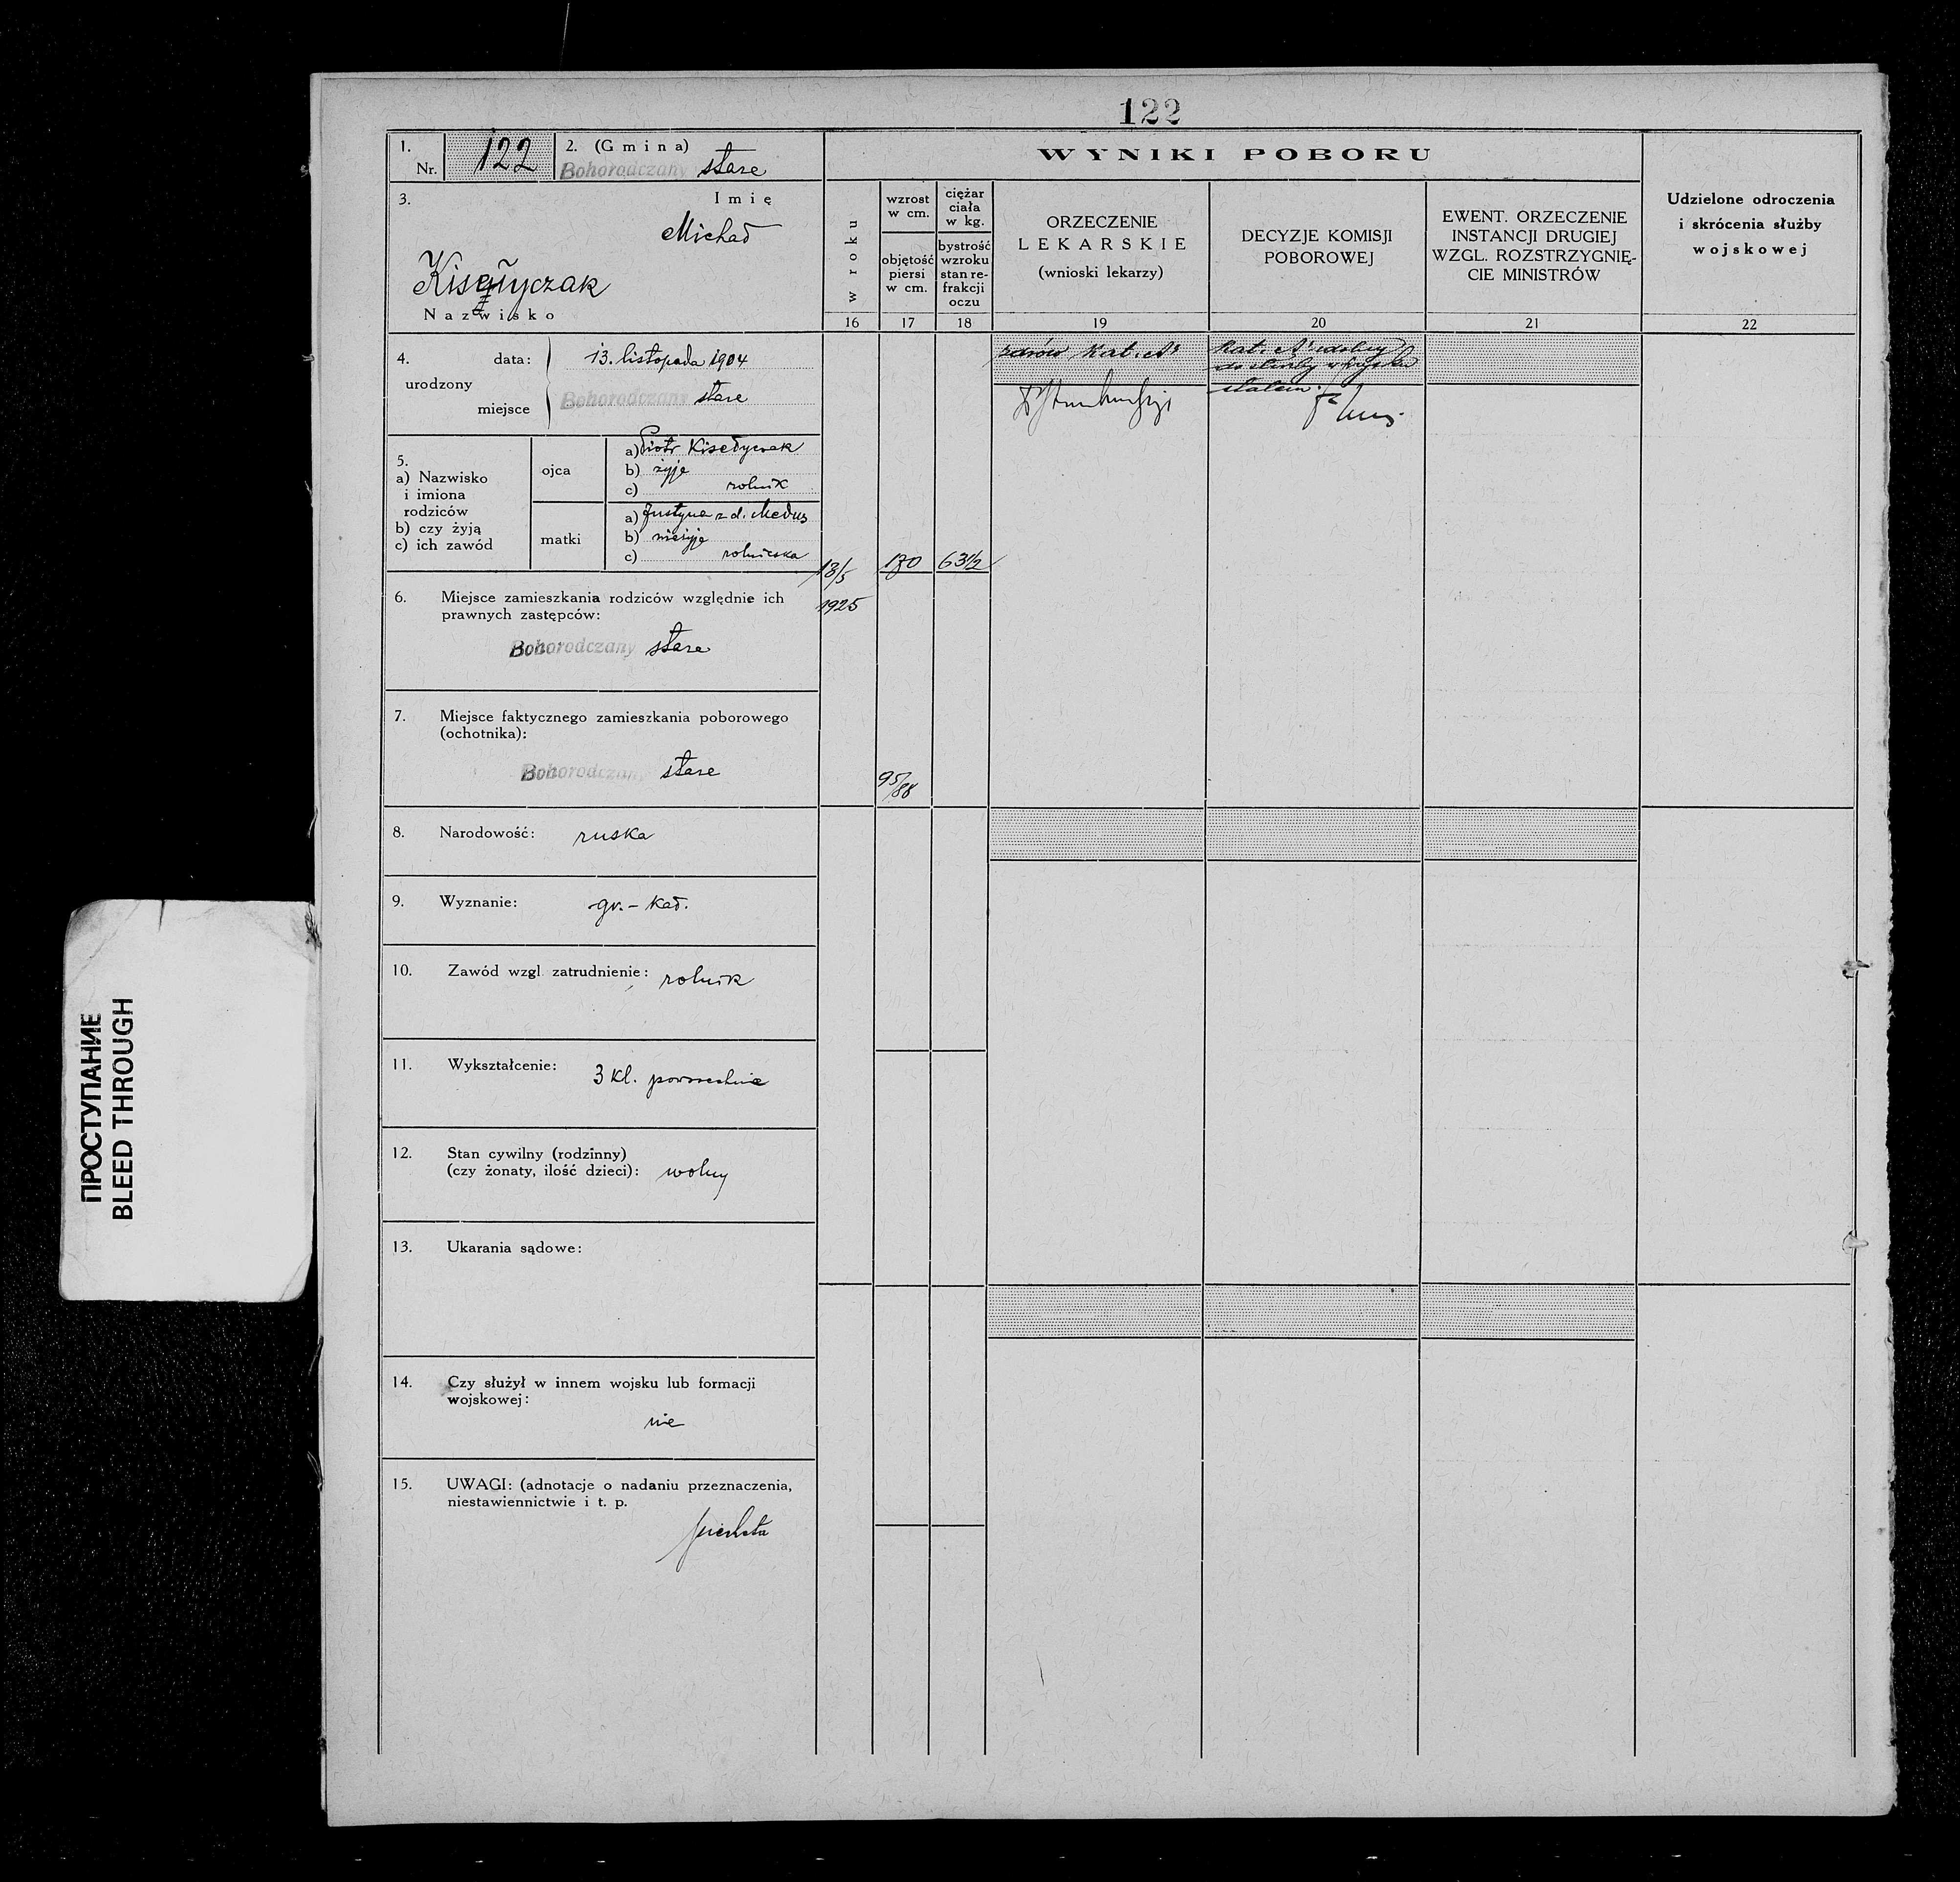 122
1.
Nr. 122
2. (Gmina)
Bohorodczany stare
3.
Imię
Michał
Nazwisko
4.
urodzony
data: 13. listopada 1904
miejsce Bohorodczany stare
5.
a) Nazwisko
i imiona
rodziców
b) czy żyją
c) ich zawód
ojca
a) Piotr Kisełyczak
b) żyje
c) rolnik
matki
a) Justyna z d.
b) nieżyje
c) rolniczka
6. Miejsce zamieszkania rodziców względnie ich
prawnych zastępców:
Bohorodczany stare
7. Miejsce faktycznego zamieszkania poborowego
(ochotnika):
Bohorodczany stare
8. Narodowość: ruska
9. Wyznanie: gr.-kat.
10. Zawód wzgl. zatrudnienie: rolnik
11. Wykształcenie: 3 kl. powszechne
12. Stan cywilny (rodzinny)
(czy żonaty, ilość dzieci): wolny
13. Ukarania sądowe:
14. Czy służył w innem wojsku lub formacji
wojskowej:
nie
15. UWAGI: (adnotacje o nadaniu przeznaczenia,
niestawiennictwie i t. p.
piechota
WYNIKI POBORU
w roku
16
wzrost
w cm.
objętość
piersi
w cm.
17
ciężar
ciała
w kg.
bystrość
wzroku
stan re-
frakcji
oczu
18
ORZECZENIE
LEKARSKIE
(wnioski lekarzy)
19
DECYZJE KOMISJI
POBOROWEJ
20
EWENT. ORZECZENIE
INSTANCJI DRUGIEJ
WZGL. ROZSTRZYGNIĘ-
CIE MINISTRÓW
21
Udzielone odroczenia
i skrócenia służby
wojskowej
22
13/5
1925
170
63 1/2
95/88
zdrów Kat. A
Kat. A zdolny
do służby w wojsku
stałem.
ПРОСТУПАНИЕ
BLEED THROUGH